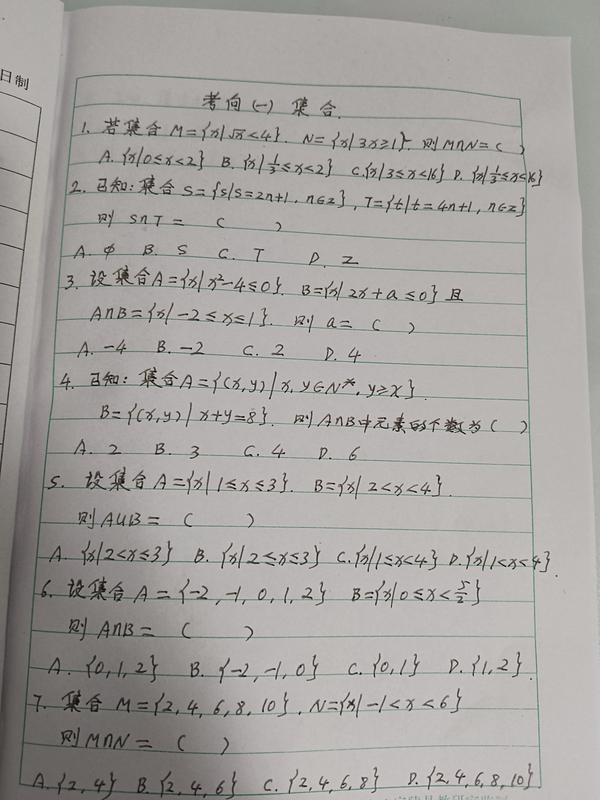 日制
考向(一) 集合.
1. 若集合 M={x|√x<4}. N={x|3x≥1}. 则M∩N=( )
A. {x|0≤x<2} B. {x|1/3≤x<2} C. {x|3≤x<16} D. {x|1/3≤x<16}
2. 已知:集合 S={s|s=2n+1, n∈z}, T={t|t=4n+1, n∈z}
则 S∩T= ( )
A. ϕ B. S C. T D. Z
3. 设集合A={x|x²-4≤0}. B={x|2x+a≤0} 且
A∩B={x|-2≤x≤1}. 则 a= ( )
A. -4 B. -2 C. 2 D. 4
4. 已知:集合A={(x,y)|x, y∈N*, y≥x}.
B={(x,y)|x+y=8}. 则A∩B中元素的个数为( )
A. 2 B. 3 C. 4 D. 6
5. 设集合 A={x|1≤x≤3}. B={x|2<x<4}.
则A∪B= ( )
A. {x|2<x≤3} B. {x|2≤x≤3} C. {x|1≤x<4} D. {x|1<x<4}.
6. 设集合 A={-2, -1, 0, 1, 2} B={x|0≤x<5/2}
则A∩B= ( )
A. {0, 1, 2} B. {-2, -1, 0} C. {0, 1} D. {1, 2}.
7. 集合 M={2, 4, 6, 8, 10}, N={x|-1<x<6}
则M∩N= ( )
A. {2, 4} B. {2, 4, 6} C. {2, 4, 6, 8} D. {2, 4, 6, 8, 10}